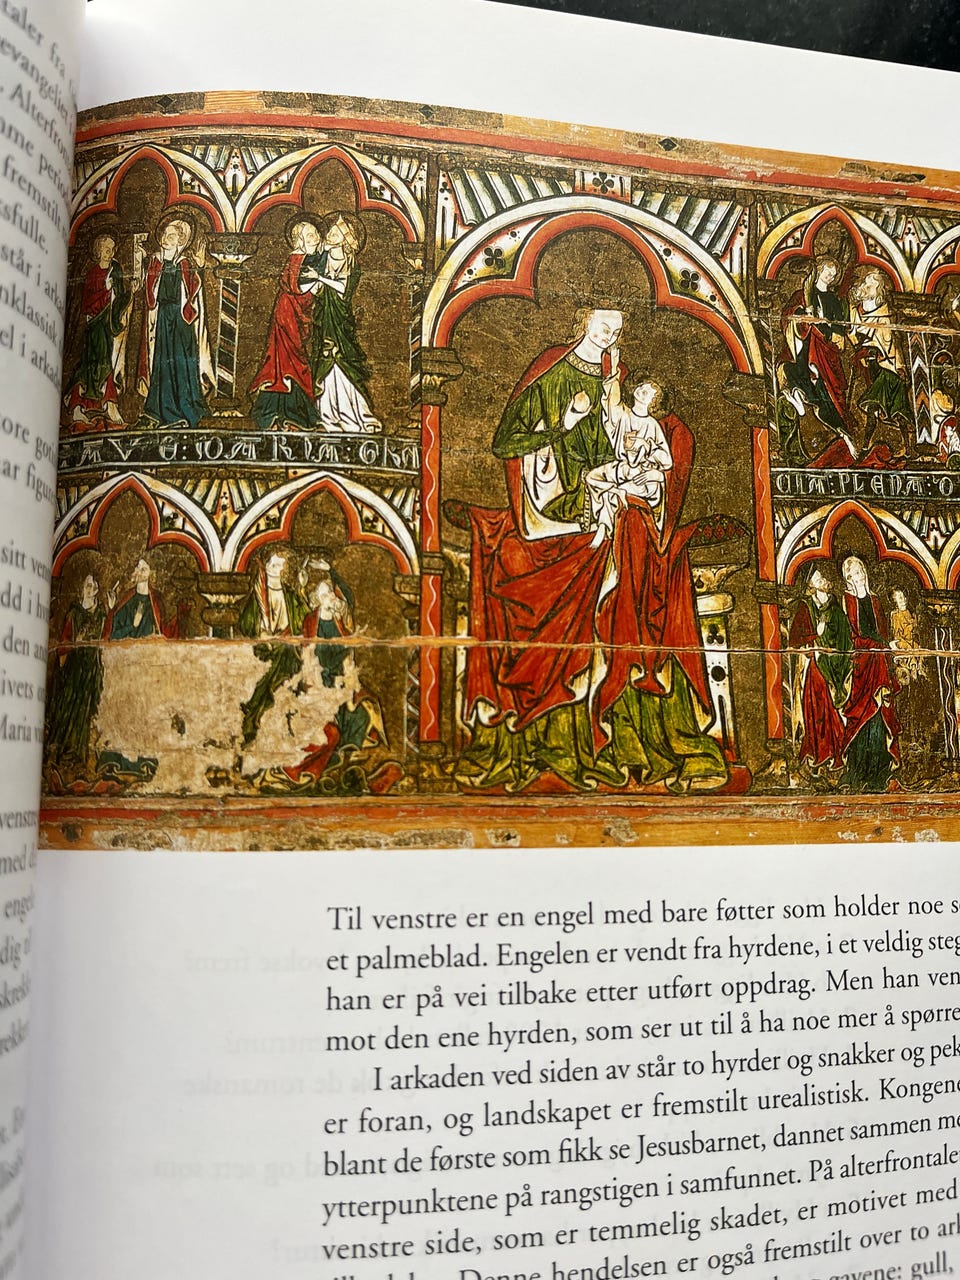 taler fra
evangeliet i
. Alterfron
me period
fremstilt
sfulle.
står i arka
nklassisk
el i arkad
ore got
ar figur
sitt ven
dd i h
den an
ivets
Maria vi
venstre
med d
engel
dig
AVE:MARIA:GRA
CIA:PLENA:D
Til venstre er en engel med bare føtter som holder noe s
et palmeblad. Engelen er vendt fra hyrdene, i et veldig steg
han er på vei tilbake etter utført oppdrag. Men han ven
mot den ene hyrden, som ser ut til å ha noe mer å spørre
I arkaden ved siden av står to hyrder og snakker og pek
er foran, og landskapet er fremstilt urealistisk. Kongene
blant de første som fikk se Jesusbarnet, dannet sammen me
ytterpunktene på rangstigen i samfunnet. På alterfrontale
venstre side, som er temmelig skadet, er motivet med
Denne hendelsen er også fremstilt over to ark
gavene: gull,